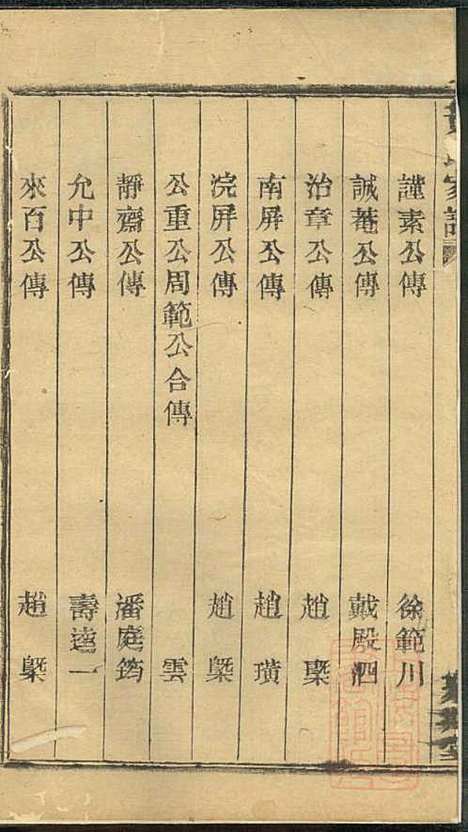 謹素公傳 徐範川
誠菴公傳 戴殿泗
治章公傳 趙槼
南屏公傳 趙璜
浣屏公傳 趙槼
公重公周範公合傳 雲
靜齋公傳 潘庭筠
允中公傳 壽逵一
來百公傳 趙槼